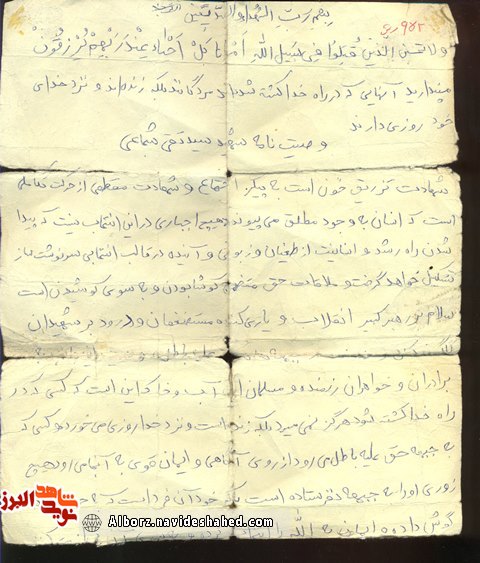 بسم رب الشهدا والصدیقین
۹۸۲
ولا تحسبن الذین قتلوا فی سبیل الله امواتا بل احیاء عند ربهم یرزقون
مپندارید آنهایی که در راه خدا کشته شده‌اند مردگانند بلکه زنده‌اند و نزد خدای
خود روزی دارند
وصیت نامه شهید سید تقی شجاعی
شهادت تزریق خون است به پیکر اجتماع و شهادت مقطعی از حرکت تکاملی
است که انسان به وجود مطلق می پیوندد هیچ اجباری در این انتخاب نیست که پیدا
شدن راه رشد و انسانیت از طغیان و زبونی و آینده در قالب انتخابی سرنوشت ساز
تشکیل خواهد گرفت و ملاقات حق کوشا بودن و به سوی کوشیدن است
سلام بر رهبر کبیر انقلاب و یاری مستضعفان و درود بر شهیدان
برادران و خواهران رزمنده و مسلمان این آب و خاک این است که کسی که در
راه خدا کشته شود هرگز نمی میرد بلکه زنده است و نزد خدا روزی می خورد و کسی که
به جبهه حق علیه باطل می رود از روی آگاهی و ایمان قوی به آنجا می رود هیچ
زوری او را به جبهه نفرستاده است بلکه خود آن فرد است که به
گوش داده و ایمانی به الله
شاهد
نوید
البرز
Alborz.navideshahed.com